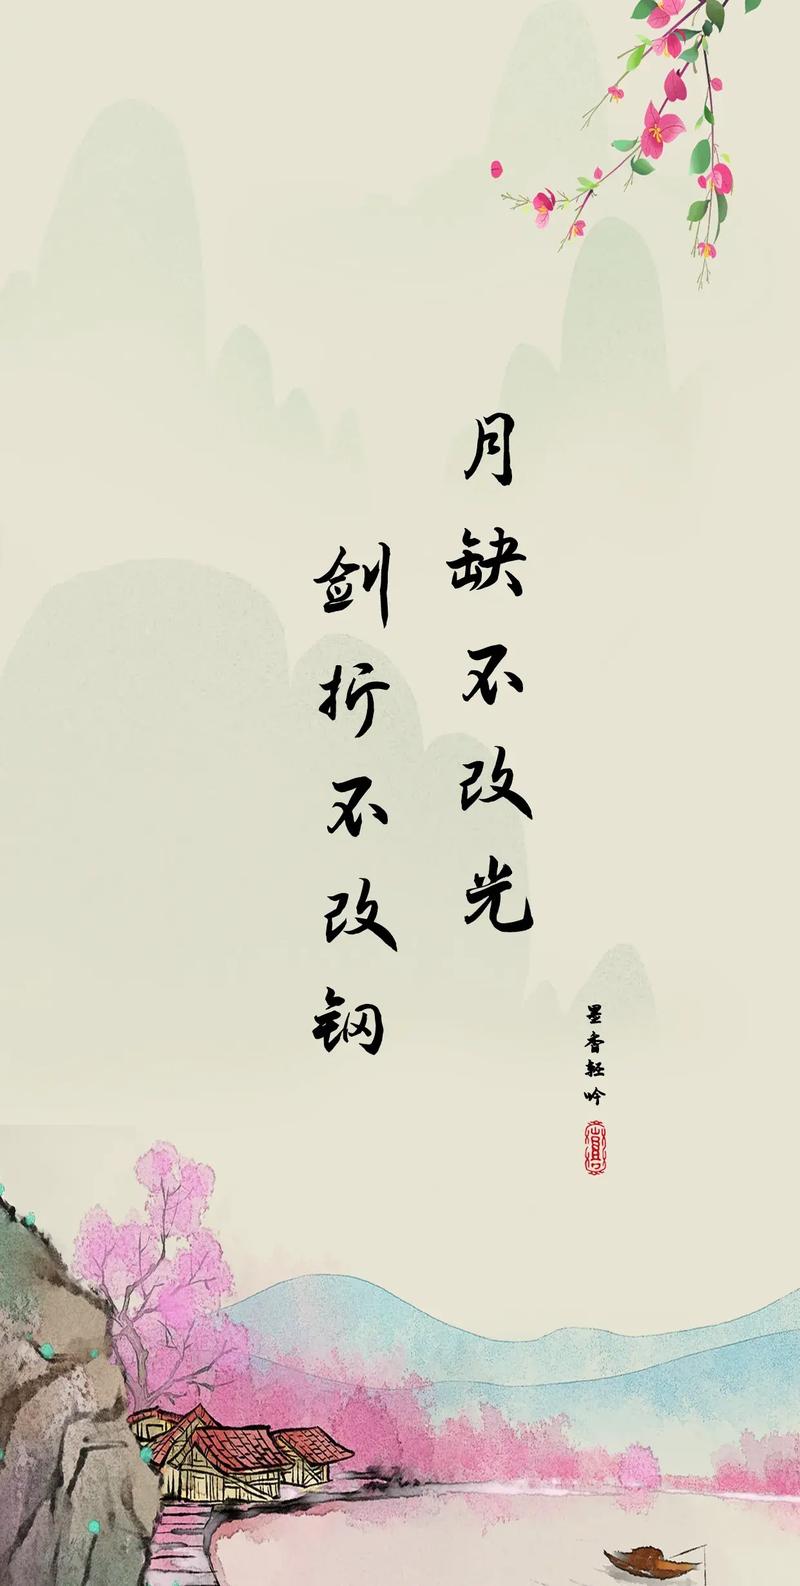 月缺不改光
剑折不改钢
墨香轻吟